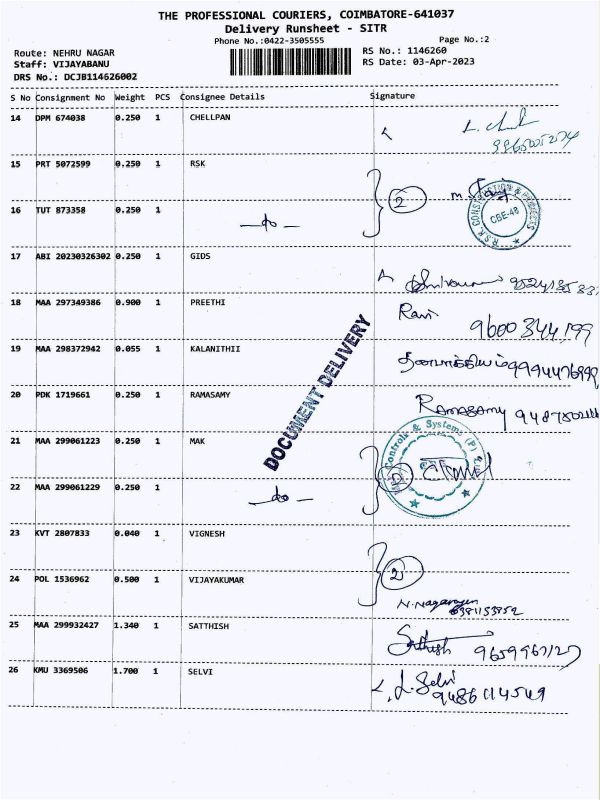 THE PROFESSIONAL COURIERS, COIMBATORE-641037
Delivery Runsheet - SITR
Phone No.:0422-3505555 Page No.:2
Route: NEHRU NAGAR RS No.: 1146260
Staff: VIJAYABANU RS Date: 03-Apr-2023
DRS No.: DCJB114626002
S No Consignment No Weight PCS Consignee Details Signature
14 DPM 674038 0.250 1 CHELLPAN
15 PRT 5072599 0.250 1 RSK
2
R.S.K. CONSTRUCTION & PROJECTS
CBE-48
16 TUT 873358 0.250 1 -do-
17 ABI 20230326302 0.250 1 GIDS
18 MAA 297349386 0.900 1 PREETHI Ravi
9600344199
19 MAA 298372942 0.055 1 KALANITHII
DOCUMENT DELIVERY
20 PDK 1719661 0.250 1 RAMASAMY Ramasamy
21 MAA 299061223 0.250 1 MAK
Controls & Systems (P)
22 MAA 299061229 0.250 1 -do-
23 KVT 2807833 0.040 1 VIGNESH
2
24 POL 1536962 0.500 1 VIJAYAKUMAR
N. Nagarajan
25 MAA 299932427 1.340 1 SATTHISH Satthish
26 KMU 3369506 1.700 1 SELVI L. Selvi
9486114549